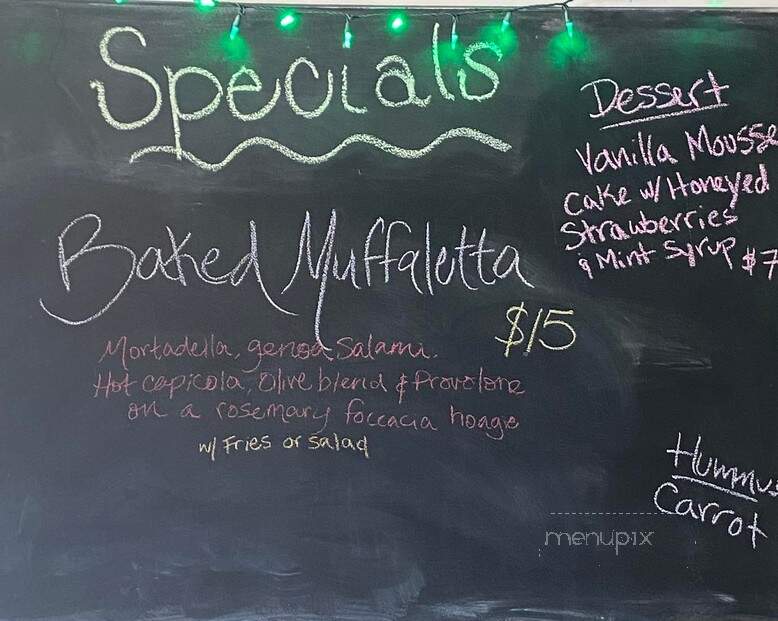 Specials
Baked Muffaletta
$15
Mortadella, genoa Salami,
Hot capicola, Olive blend & Provolone
on a rosemary foccacia hoagie
w/ Fries or salad
Dessert
Vanilla Mousse
Cake w/ Honeyed
Strawberries
& Mint Syrup $7
Hummus
Carrot
menupix